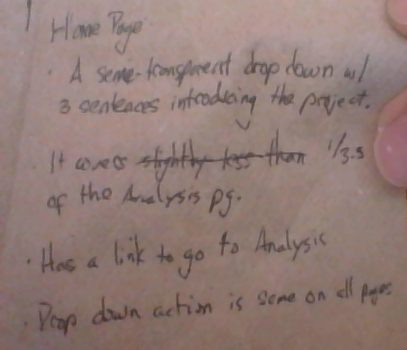 Home Page
· A seme-transparent drop down w/
3 sentences introducing the project.
· It covers slightly less than 1/3.5
of the Analysis pg.
· Has a link to go to Analysis
· Drop down action is same on all pages